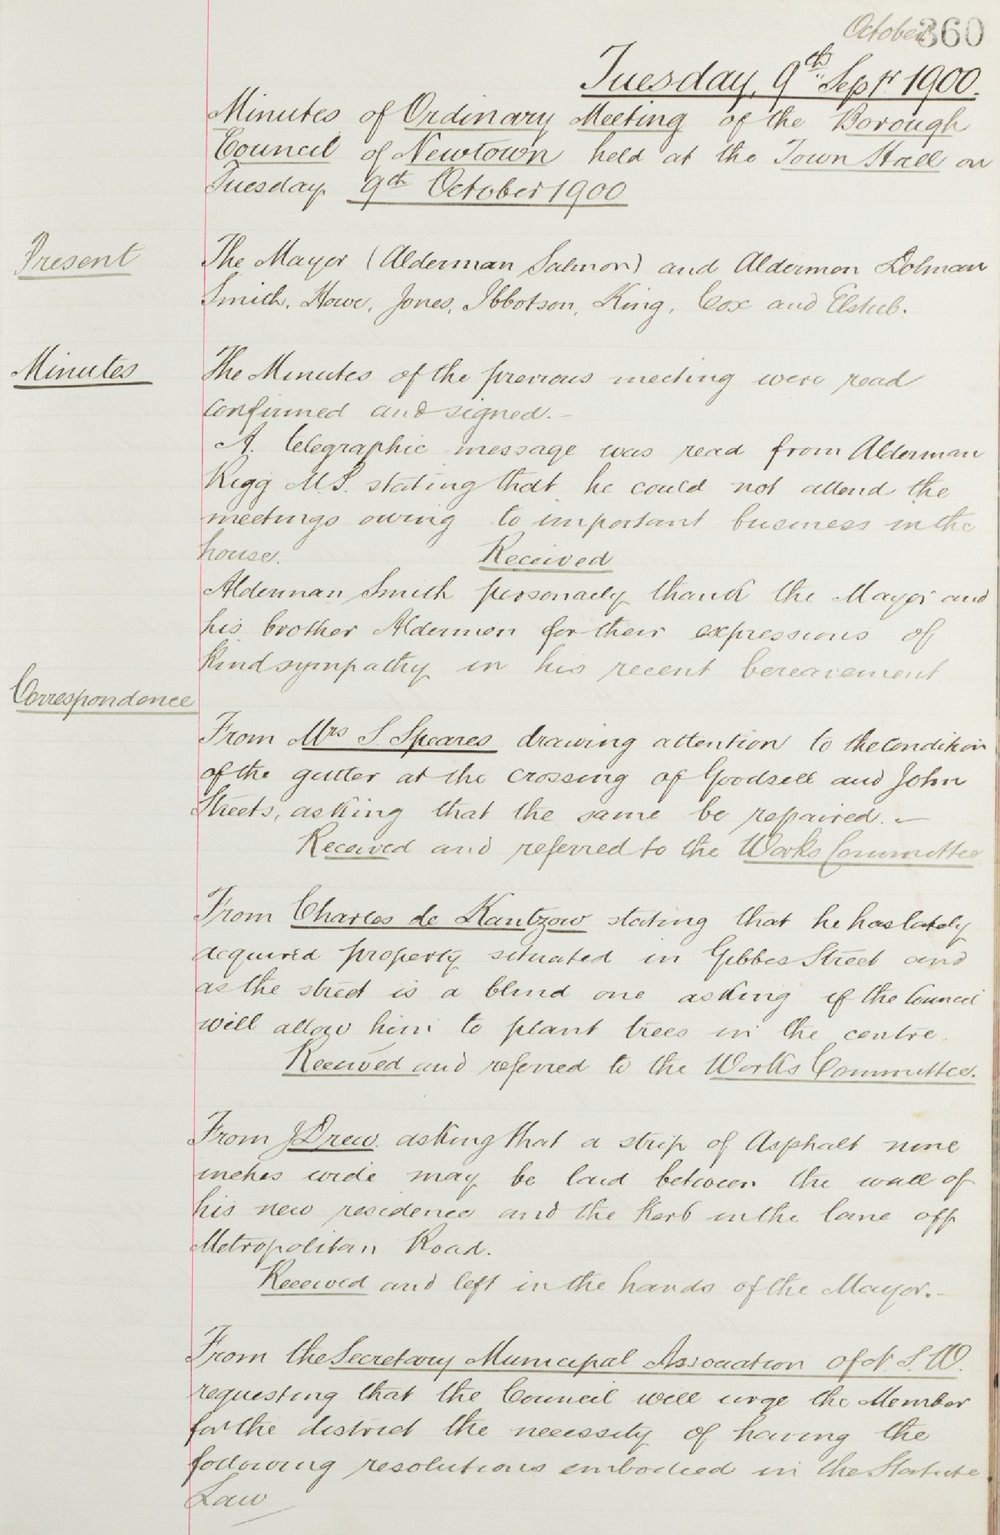 October 360
Tuesday, 9th Sept 1900.
Minutes of Ordinary Meeting of the Borough
Council of Newtown held at the Town Hall on
Tuesday 9th October 1900
Present
The Mayor (Alderman Salmon) and Aldermen Dolman
Smith, Howe, Jones, Ibbotson, King, Cox and Elstub.
Minutes
The Minutes of the previous meeting were read
confirmed and signed. -
A. telegraphic message was read from Alderman
Rigg M.P. stating that he could not attend the
meetings owing to important business in the
house. Received
Alderman Smith personaely thank the Mayor and
his brother Aldermen for their expressions of
kind sympathy in his recent bereavement
Correspondence
From Mrs S Speares drawing attention to the condition
of the gutter at the crossing of Goodsell and John
Streets, asking that the same be repaired. -
Received and referred to the Works Committee
From Charles de Kantzow stating that he has lately
acquired property situated in Gibbes Street and
as the street is a blind one asking if the Council
will allow him to plant trees in the centre
Received and referred to the Works Committee.
From J Drew asking that a strip of Asphalt nine
inches wide may be laid between the wall of
his new residence and the Kerb in the lane off
Metropolitan Road.
Received and left in the hands of the Mayor. -
From the Secretary Municipal Association of N S W.
requesting that the Council will urge the Member
for the district the necessity of having the
following resolutions embodied in the Statute
Law